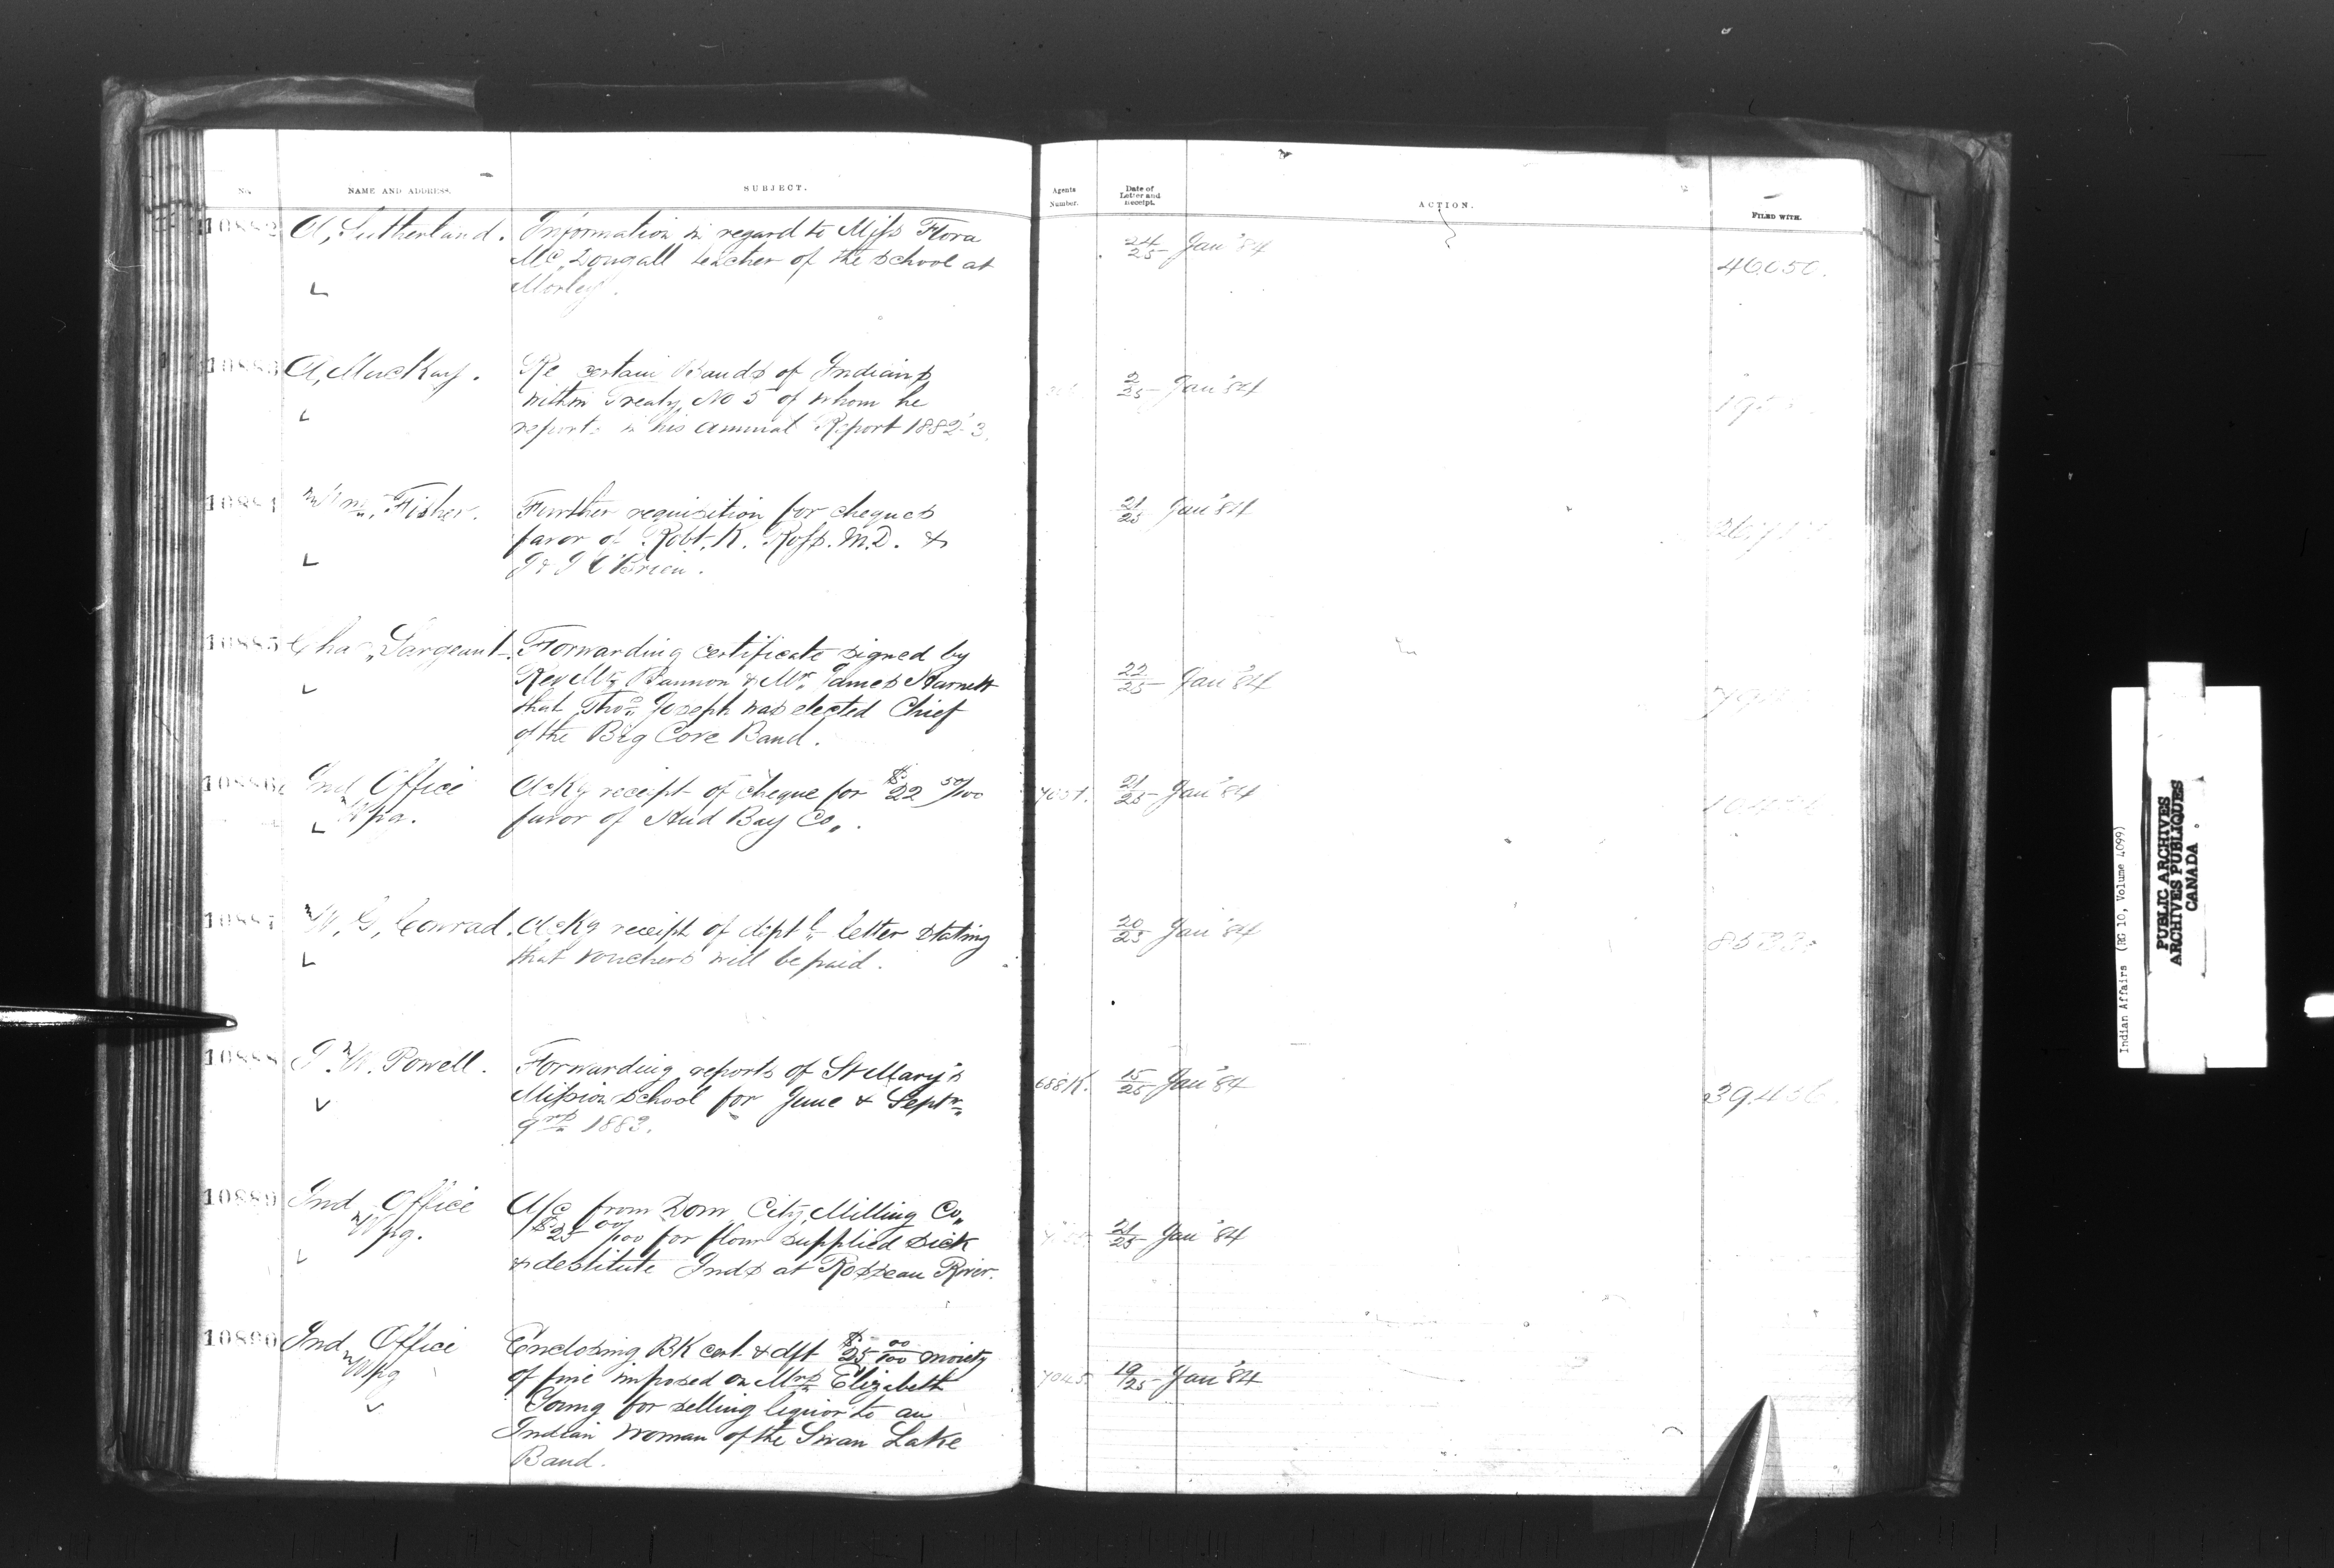 No. NAME AND ADDRESS. SUBJECT. Agents Number. Date of Letter and Receipt. ACTION. FILED WITH.
10882 A, Sutherland. Information in regard to Miss Flora 24/25 Jan '84 46050.
McDougall teacher of the school at
Morley.
10883 A, MacKay. Re certain Bands of Indians 2/25 Jan '84
within Treaty No 5 of whom he
reports in his annual Report 1882-3.
10884 Wm. Fisher. Further requisition for cheques 21/25 Jan '84
favor of Robt. K. Ross. M.D. &
O'Brien.
10885 Chas, Sargeant. Forwarding certificate signed by 22/25 Jan '84
Rev Mr Bannon & Mr. James Harnett
that Thos Joseph was elected Chief
of the Big Cove Band.
10886 Ind Office Ackg receipt of cheque for $22 50/100 21/25 Jan '84
Wpg. favor of Hud Bay Co,.
10887 W. G, Conrad. Ackg receipt of dipt l letter stating 20/25 Jan '84
that vouchers will be paid.
10888 I. W. Powell. Forwarding reports of St Mary's 658K. 15/25 Jan '84 39,436
Mission School for June & Septr
qrs 1883.
10889 Ind Office A/c from Dom City Milling Co, 21/25 Jan '84
Wpg. $25 00/100 for flour supplied sick
& destitute Inds at Rosseau River.
10890 Ind, Office Enclosing BK cert. & dft $25 00/100 moiety
Wpg of fine imposed on Mrs Elizabeth 7045. 19/25 Jan '84
Young for selling liquor to an
Indian woman of the Swan Lake
Band.
Indian Affairs (RG 10, Volume 4099)
PUBLIC ARCHIVES
ARCHIVES PUBLIQUES
CANADA